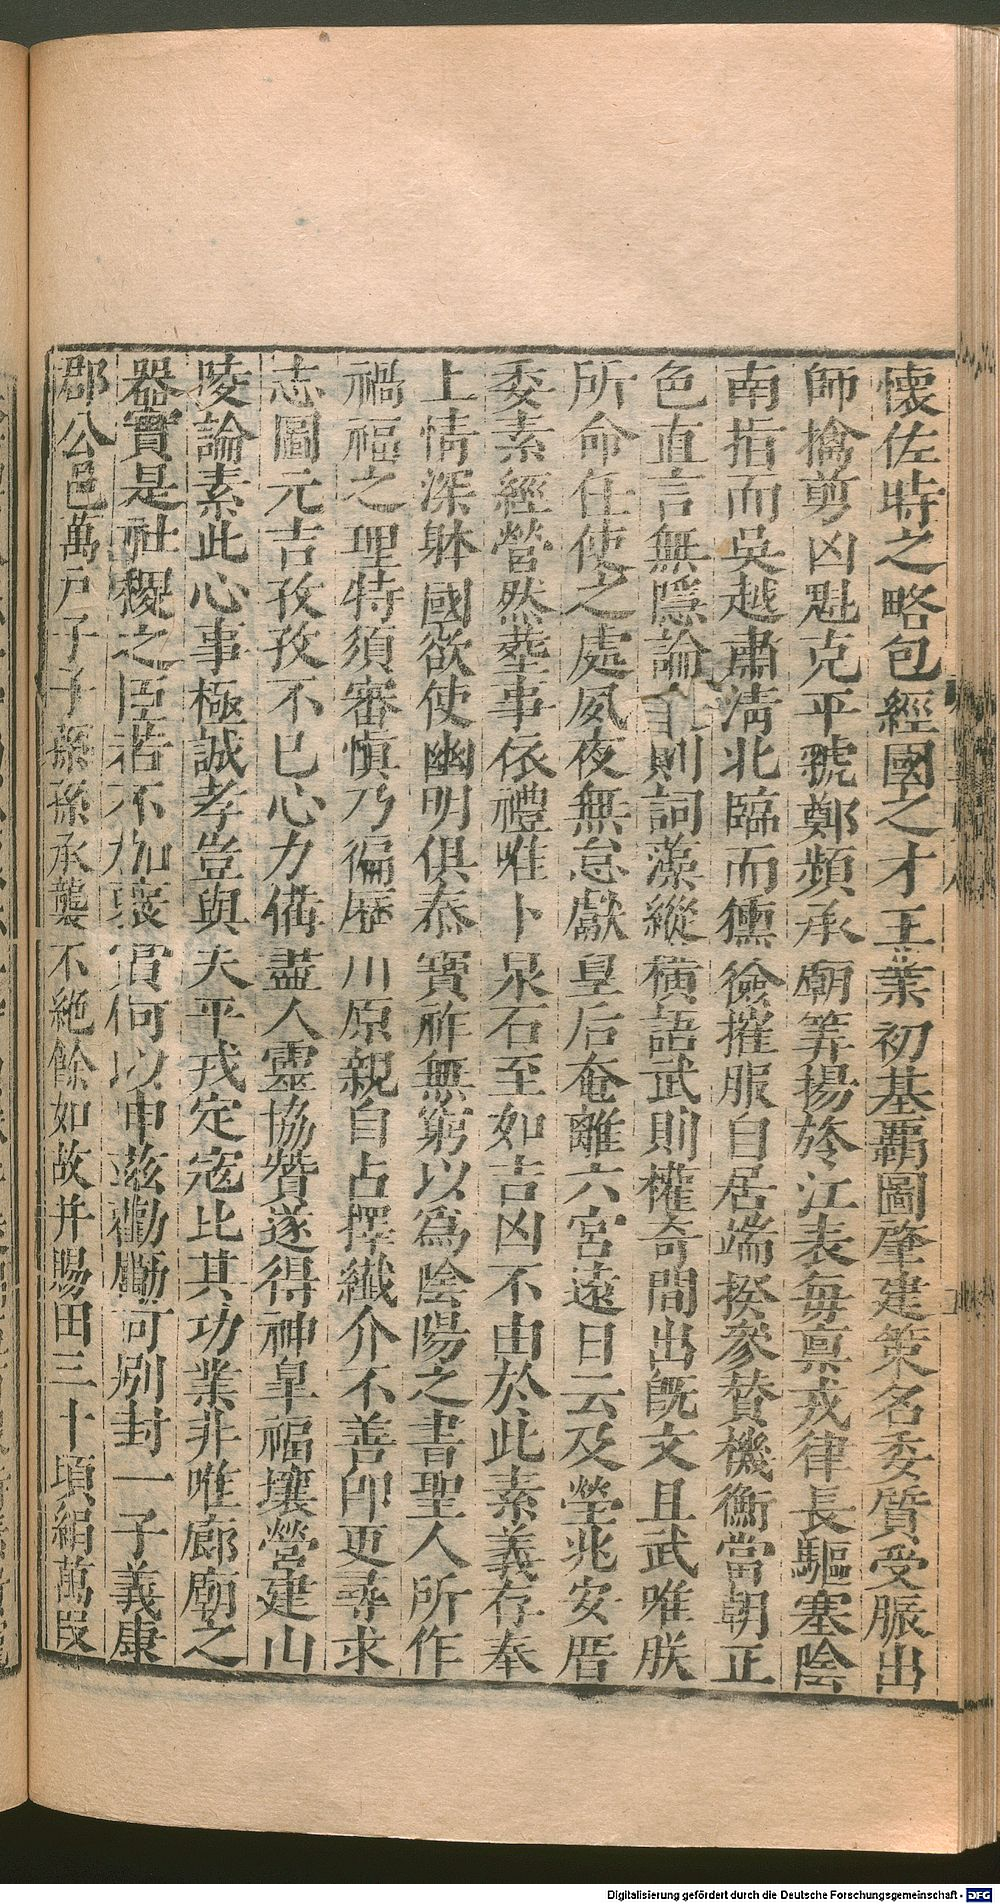 懷佐時之略包經國之才王業初基覇圖肇建策名委質受脤出
師擒剪凶魁克平虢鄭頻承廟筭揚旍江表每禀戎律長驅塞陰
南指而吳越肅淸北臨而獯獫摧服自居端揆參賛機衡當朝正
色直言無隱論文則詞藻縱橫語武則權奇間出旣文且武唯朕
所命任使之處夙夜無怠獻皇后奄離六宮遠日云及塋兆安厝
委素經營然塟事依禮唯卜泉石至如吉凶不由於此素義存奉
上情深躰國欲使幽明俱泰寶祚無窮以爲陰陽之書聖人所作
禍福之理特須審慎乃徧歷川原親自占擇纎介不善卽更尋求
志圖元吉孜孜不已心力備盡人靈協贊遂得神皐福壤營建山
陵論素此心事極誠孝豈與夫平戎定寇比其功業非唯廊廟之
器實是社稷之臣若不加襃賞何以申兹勸勵可別封一子義康
郡公邑萬戶子子孫孫承襲不絶餘如故并賜田三十頃絹萬叚
Digitalisierung gefördert durch die Deutsche Forschungsgemeinschaft - DFG